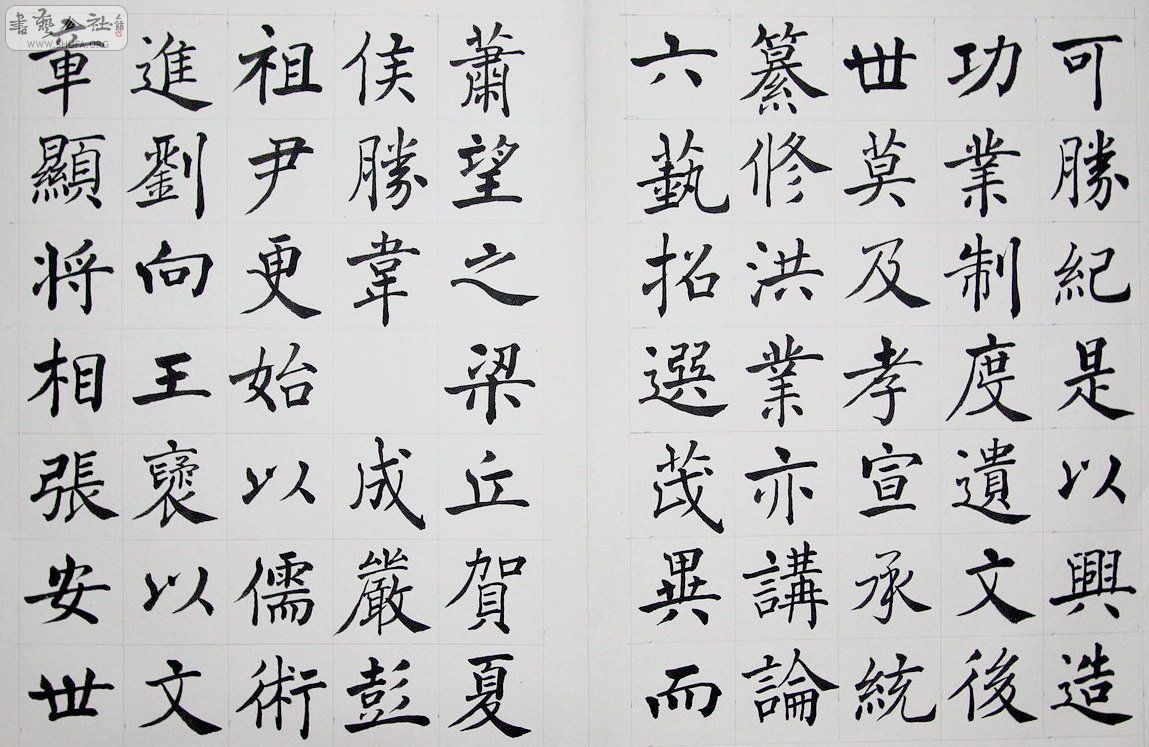 可勝紀是以興造
功業制度遺文後
世莫及孝宣承統
纂修洪業亦講論
六藝招選茂異而
蕭望之梁丘賀夏
侯勝韋 成嚴彭
祖尹更始以儒術
進劉向王襃以文
章顯将相張安世
書藝公社
WWW.SHUFA.ORG